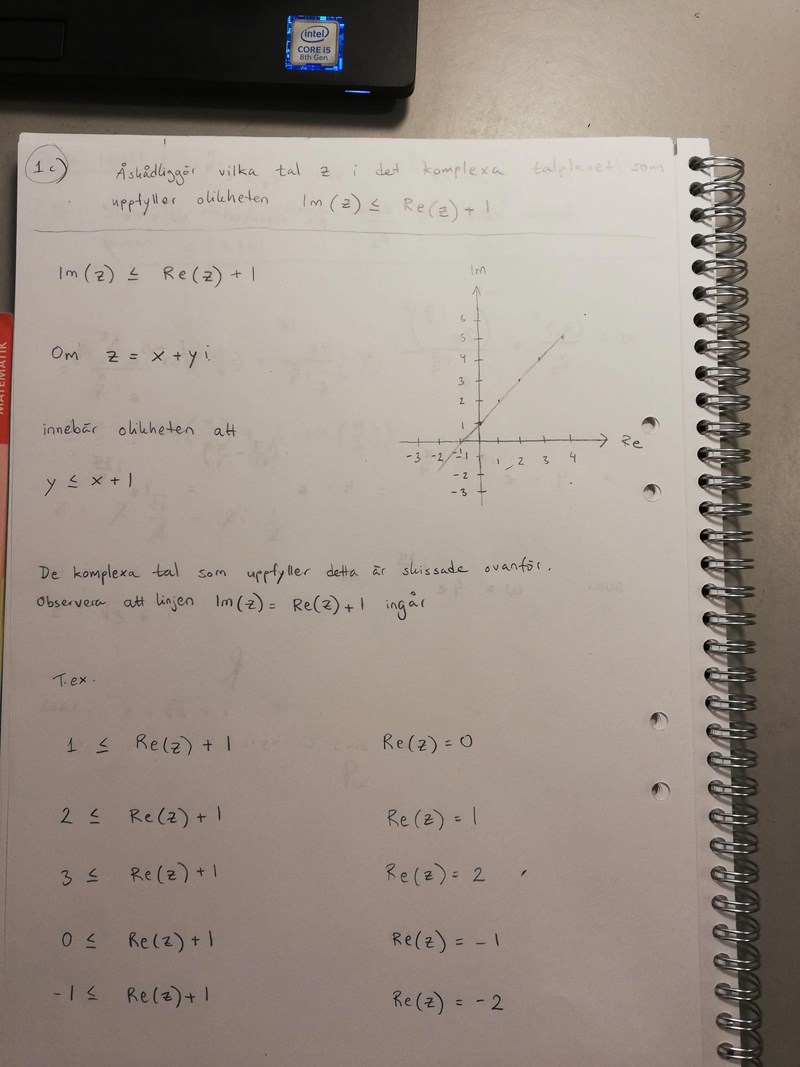 intel
CORE i5
8th Gen
MATEMATIK
1c)
Åskådliggör vilka tal z i det komplexa talplanet som
uppfyller olikheten Im(z) ≤ Re(z) + 1
Im(z) ≤ Re(z) + 1
Im
6
5
4
3
2
1
-3 -2 -1 1 2 3 4 Re
-1
-2
-3
Om z = x + yi
innebär olikheten att
y ≤ x + 1
De komplexa tal som uppfyller detta är skissade ovanför.
Observera att linjen Im(z) = Re(z) + 1 ingår
T.ex.
1 ≤ Re(z) + 1 Re(z) = 0
2 ≤ Re(z) + 1 Re(z) = 1
3 ≤ Re(z) + 1 Re(z) = 2
0 ≤ Re(z) + 1 Re(z) = -1
-1 ≤ Re(z) + 1 Re(z) = -2